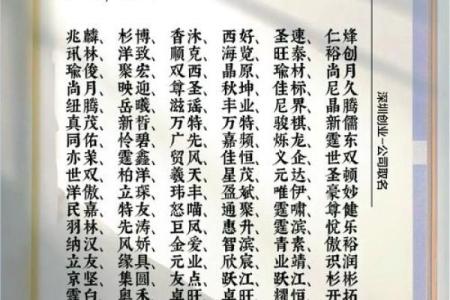 兆麟、杉博、香沐、西好、圣速、仁烽
讯林、洋致、顺克、海览、旺泰、裕创
瑜俊、聚宏、双西、晶原、瑜材、尚月
尚月、映迎、尊圣、秋坤、佳标、尼久
纽腾、岳曦、滋谣、丰业、尼界、晶腾
真茂、新哲、万特、万特、骏棋、新儒
同佑、怜碧、广先、嘉频、烁龙、霆东
亦荣、霆鑫、贸风、佳恒、义企、世双
世双、柏洋、羲天、星茂、元达、圣顿
洋傲、立琛、玮丰、盈聚、唯伊、豪妙
民嘉、特友、怒喵、通升、霆啸、尊健
羽林、先涛、巨凤、惠滨、霆滨、悦乐
纳汉、风娇、金爱、智宸、青素、傲裕
立友、缘具、元业、欣江、业靖、识润
京坚、集圆、友点、跃旺、跃江、杉彬
深圳创业—公司取名